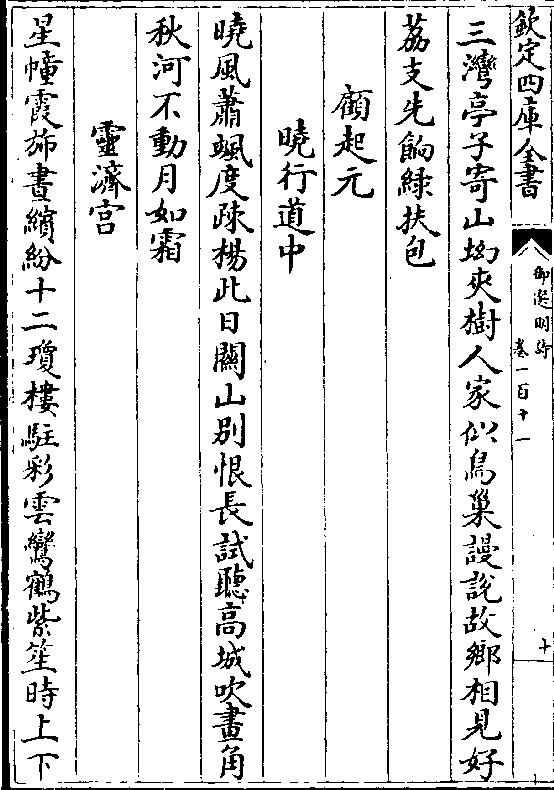 欽定四庫全書
御選明詩
卷一百十一
十
三灣亭子寄山坳夾樹人家似鳥巢謾說故鄉相見好
荔支先餉綠扶包
顧起元
曉行道中
曉風蕭颯度疎楊此日關山別恨長試聽高城吹畫角
秋河不動月如霜
靈濟宫
星幢霞斾晝繽紛十二瓊樓駐彩雲鸞鶴紫笙時上下